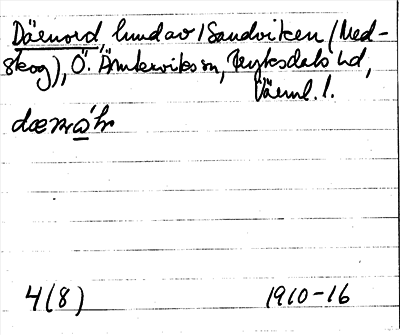 Däenord, hmd av 1 Sandviken (Med-
skog), Ö. Ämterviks sn, Fryksdals hd,
Värml. l.
4(8) 1910-16